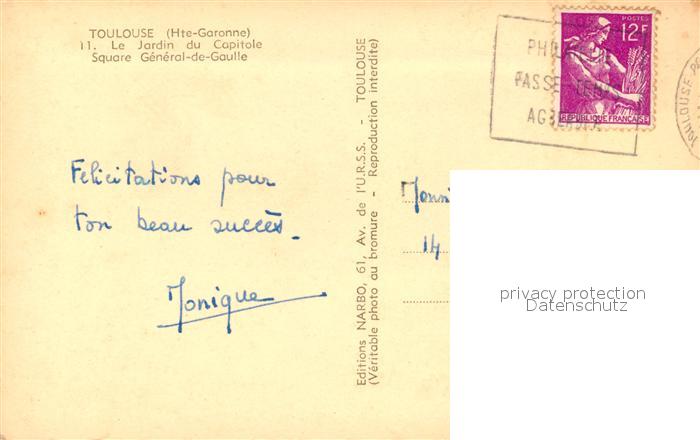 TOULOUSE (Hte-Garonne)
11. Le Jardin du Capitole
Square Général-de-Gaulle
Felicitations pour
ton beau succès_
Monique
Editions NARBO, 61, Av. de l'U.R.S.S. - TOULOUSE
(Véritable photo au bromure - Reproduction interdite)
PASSE TEMPS
POSTES
12F
REPUBLIQUE FRANÇAISE
TOULOUSE
14
privacy protection
Datenschutz